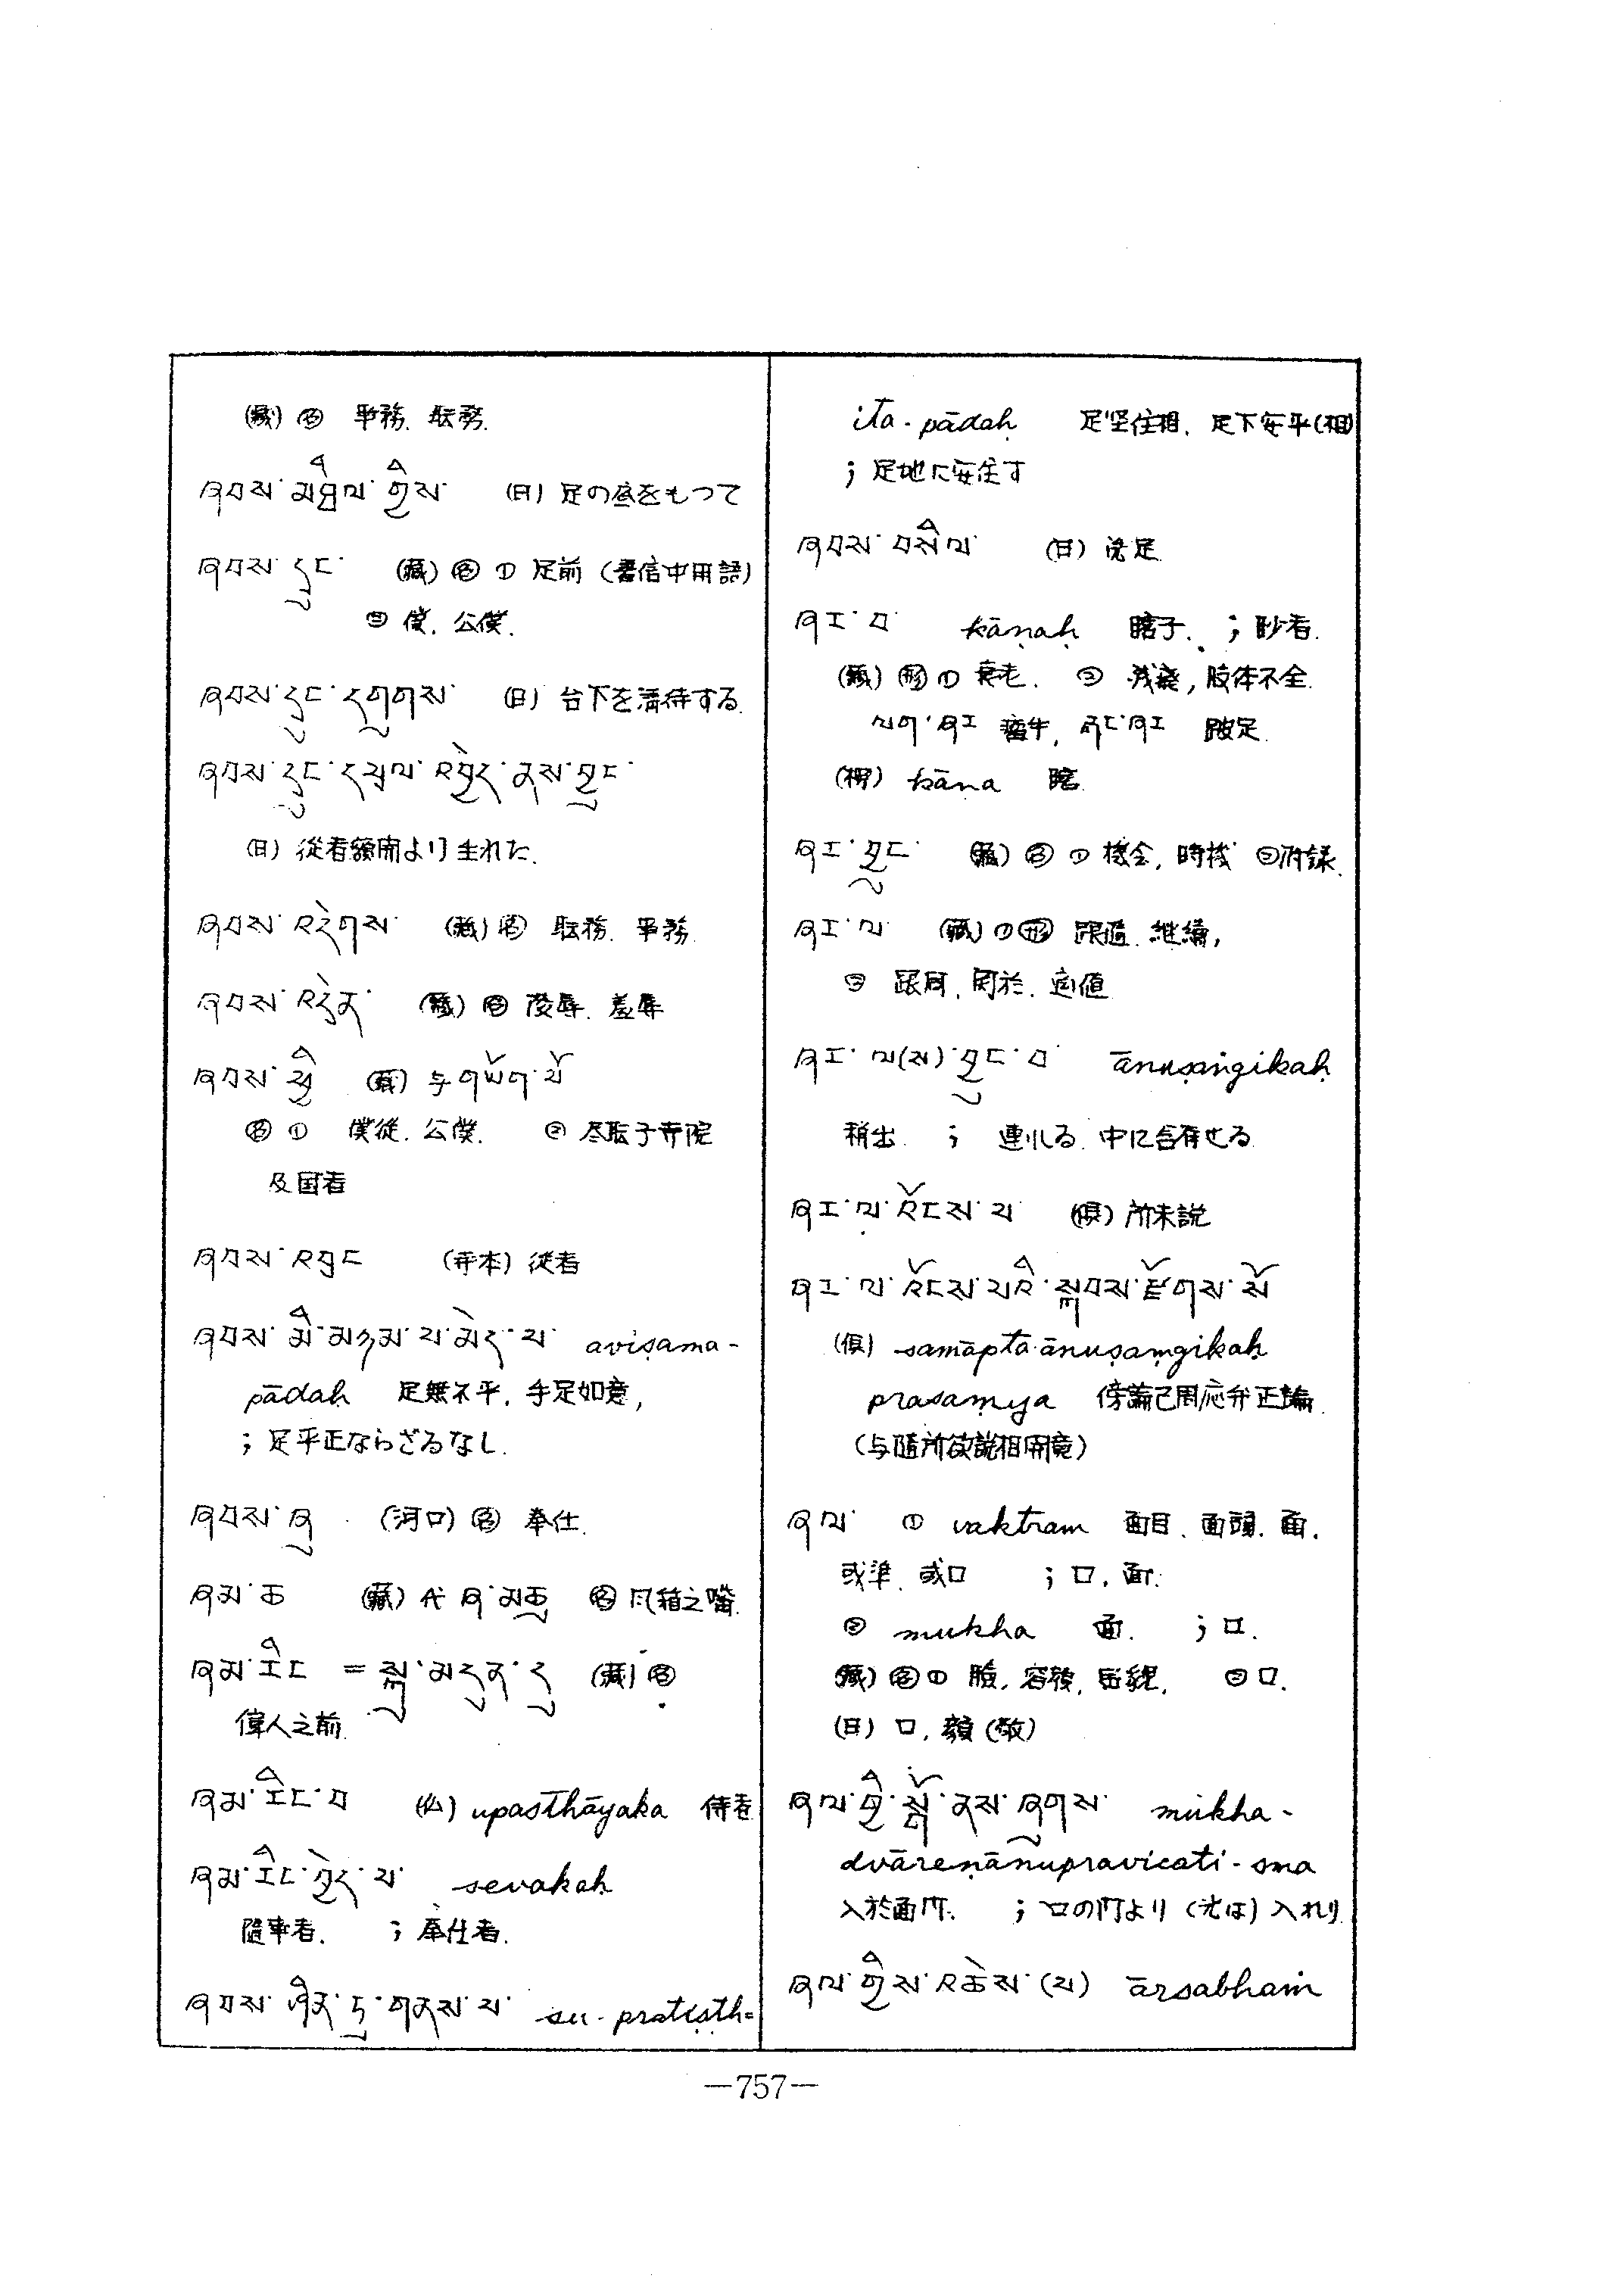 (藏) 名 事務. 転務.
ཞབས་མཐིལ་གྱིས་ (日) 足の底をもつて
ཞབས་དྲུང་ (藏) 名 ① 足前 (書信中用語)
② 僕. 公僕.
ཞབས་དྲུང་དགུགས་ (日) 台下を請待する
ཞབས་དྲུང་དཔྲལ་འབྱེད་ནས་བྱུང་
(日) 從者額開より生れた.
ཞབས་འདེགས་ (藏) 名 転務. 事務.
ཞབས་འདྲེན་ (藏) 名 陵辱. 羞辱
ཞབས་ཕྱི་ (藏) 与གཡོག་པོ
名 ① 僕從. 公僕. ② 尽転于寺院
及国者
ཞབས་འབྲང (寺本) 從者
ཞབས་མི་མཉམ་པ་མེད་པ་ aviṣama-
pādaḥ 足無不平. 手足如意,
; 足平正ならざるなし.
ཞབས་ཞུ (河口) 名 奉仕.
ཞམ་ཙ (藏) 代 ཞྭ་མཙུ 名 风箱之嘴.
ཞམ་རིང = སྐུ་མདུན་དུ (藏) 名
偉人之前.
ཞམ་རིང་བ (仏) upasthāyaka 侍者
ཞམ་རིང་བྱེད་པ་ sevakaḥ
隨事者. ; 奉仕者.
ཞབས་ཤིན་ཏུ་གནས་པ་ su-pratiṣṭh=
ita-pādaḥ 足堅住相. 足下安平(相)
; 足地に安住す
ཞབས་བསིལ་ (日) 洗足
ཞར་བ kāṇaḥ 瞎子. ; 眇者.
(藏) 形 ① 衰老. ② 残廢, 肢体不全.
ལག་ཞར 瘤牛, རྐང་ཞར 跛足.
(梵) kāṇa 瞎.
ཞར་བྱུང་ (藏) 名 ① 機会, 時機 ② 附録.
ཞར་ལ་ (藏) ① 形 跟隨. 継續,
② 跟同, 関於. 適値
ཞར་ལ(ས)་བྱུང་བ ānuṣaṅgikaḥ
稍出. ; 連れる. 中に含有せる
ཞར་ལ་འོངས་པ (倶) 所未説
ཞར་ལ་འོངས་པའི་སྐབས་རྫོགས་སོ
(倶) samāpta-ānuṣaṃgikaḥ
prasaṃya 傍論已周応弁正論.
(与隨所欲說相同竟)
ཞལ་ ① vaktram 面目. 面頭. 面.
或準. 或口 ; 口. 面.
② mukha 面. ; 口.
(藏) 名 ① 臉. 容貌. 面貌. ② 口.
(日) 口. 顔 (敬)
ཞལ་གྱི་སྒོ་ནས་ཞུགས་ mukha-
dvāreṇānupravicati-sma
入於面門. ; 口の門より (光は) 入れり.
ཞལ་གྱིས་འཆེས་(པ) ārsabhaṁ
—757—